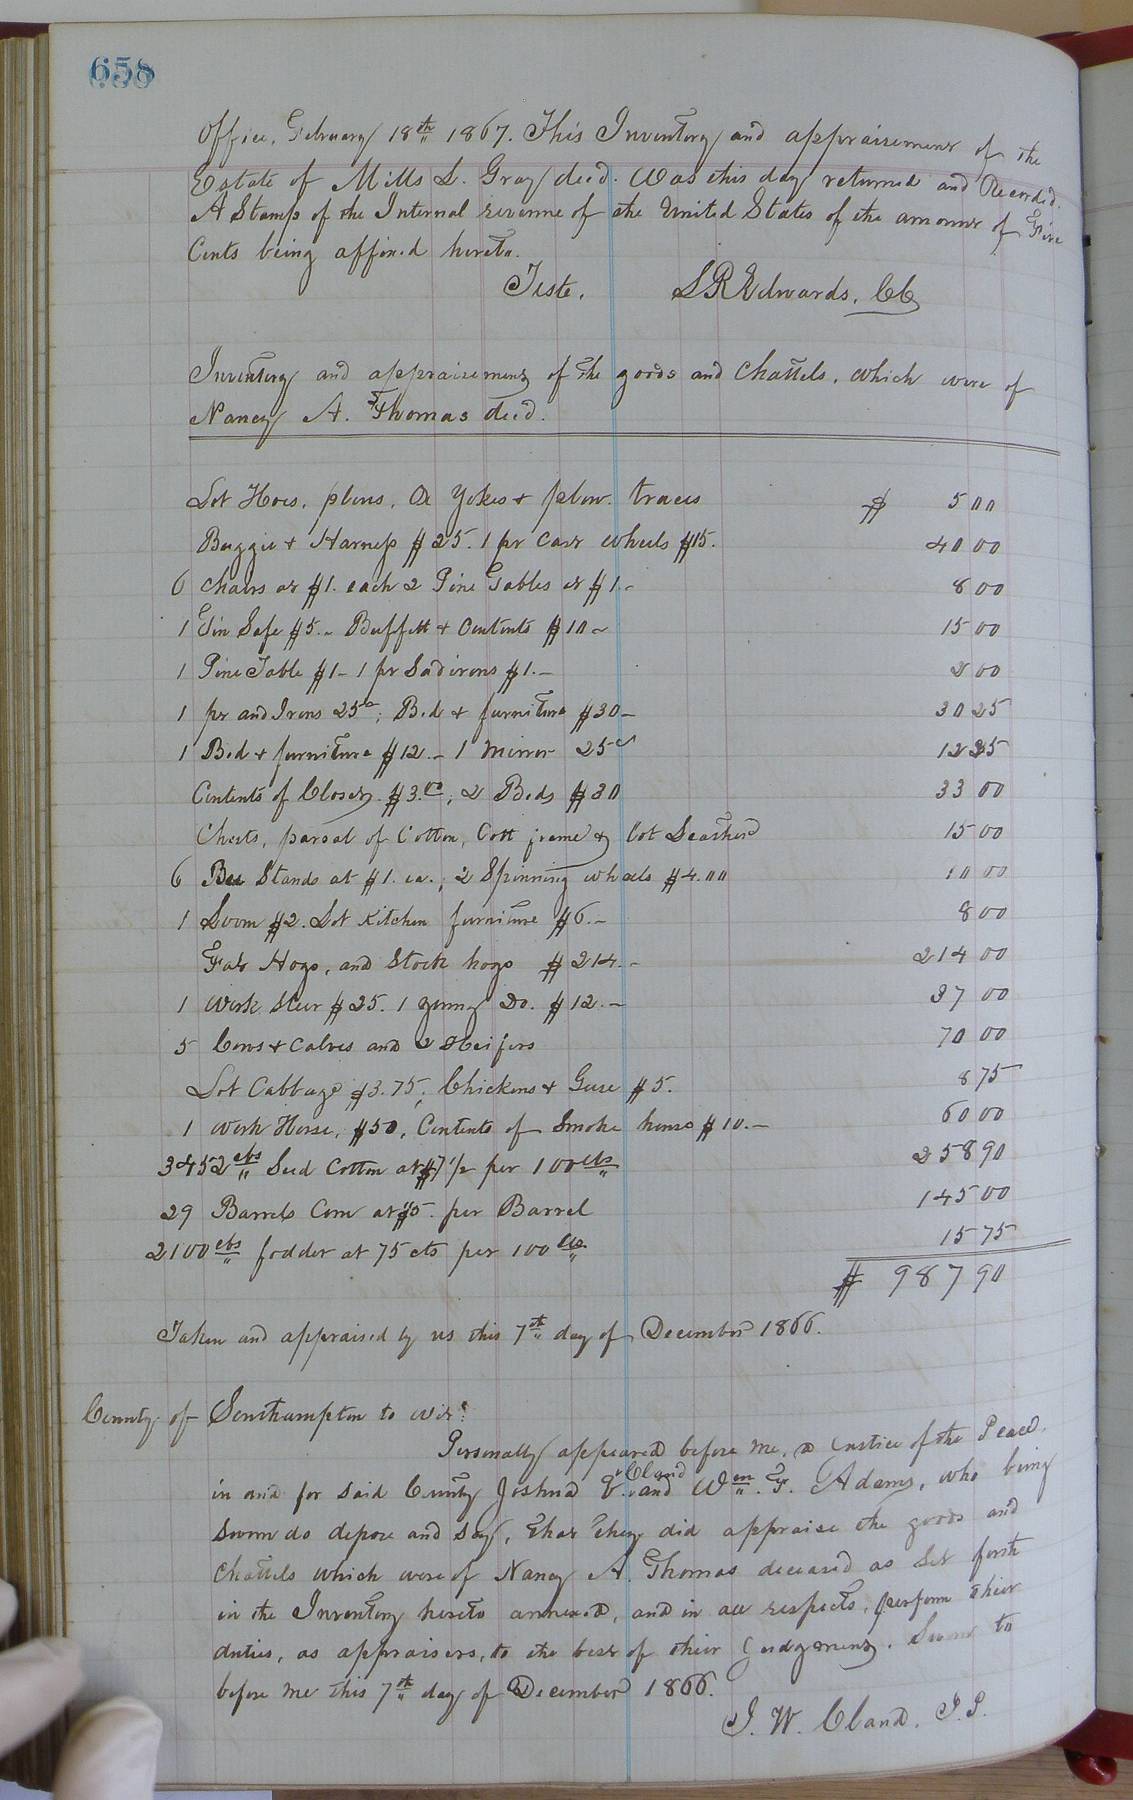 658
Office, February 18th 1867. This Inventory and appraisement of the
Estate of Mills L. Gray decd. Was this day returned and Recorded.
A Stamp of the Internal revenue of the United States of the amount of Five
Cents being affixed hereto.
Teste, L R Edwards, CC
Inventory and appraisement of the goods and Chattels, which were of
Nancy A. Thomas decd.
Lot Hoes, plows, Ox Yokes & plow traces $ 5 00
Buggie & Harness $25. 1 pr Cart wheels $15. 40 00
6 chairs at $1. each 2 Pine Tables at $1.- 8 00
1 Tin Safe $5.- Buffett & Contents $10 - 15 00
1 Pine Table $1- 1 pr Sad irons $1.- 2 00
1 pr and Irons 25c; Bed & furniture $30- 30 25
1 Bed & furniture $12.- 1 Mirror 25cs 12 25
Contents of Closet $3.00; 2 Beds $30 33 00
Chests, parsal of Cotton, Cott frame & lot 15 00
6 Bee Stands at $1. ea.; 2 Spinning wheels $4.00 10 00
1 Loom $2. Lot Kitchen furniture $6.- 8 00
Fat Hogs, and Stock hogs $214.- 214 00
1 Work Steer $25. 1 young Do. $12.- 37 00
5 Cows & Calves and 2 Heifers 70 00
Lot Cabbage $3.75; Chickens & Geese $5. 8 75
1 Work Horse, $50, Contents of Smoke house $10.- 60 00
3452 lbs Seed Cotton at $7 1/2 per 100 lbs 258 90
29 Barrels Corn at $5. per Barrel 145 00
2100 lbs fodder at 75 cts per 100 lbs 15 75
$ 987 90
Taken and appraised by us this 7th day of December 1866.
County of Southampton to wit:
Personally appeared before me, a Justice of the Peace
in and for said County Joshua E. Cland and Wm. F. Adams, who being
sworn do depose and say, that they did appraise the goods and
Chattels which were of Nancy A. Thomas deceased as set forth
in the Inventory hereto annexed, and in all respects, perform their
duties, as appraisers, to the best of their Judgement. Sworn to
before me this 7th day of December 1866.
J. W. Cland. J.P.